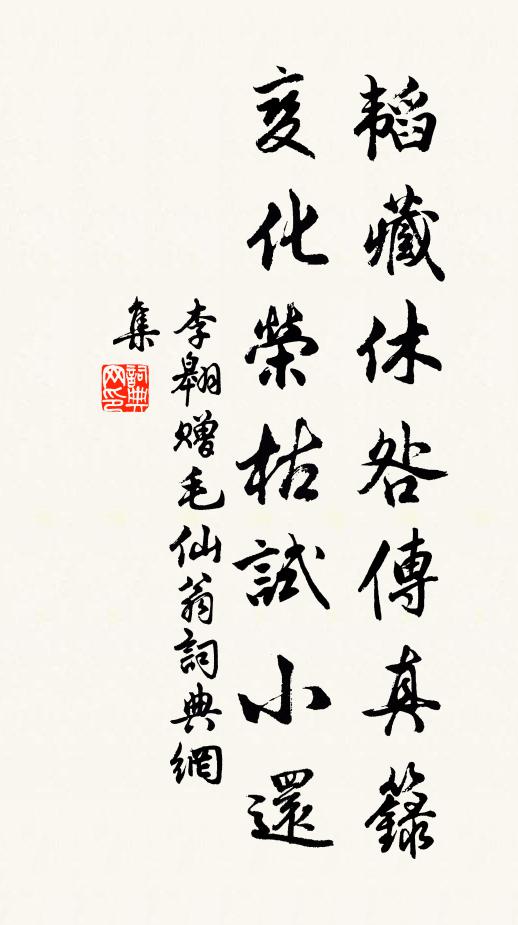 韜藏休咎傳真籙
變化榮枯試小還
李翱贈毛仙翁詞典網
集
詞典网印